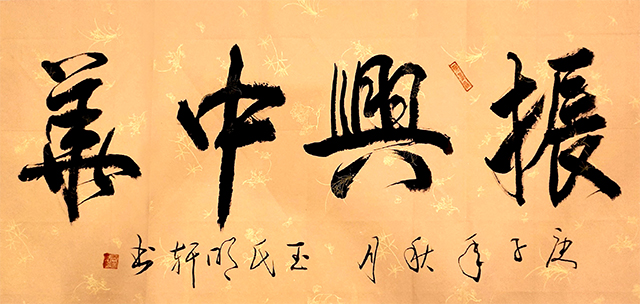 振興中華
庚子年秋月 玉氏明軒书